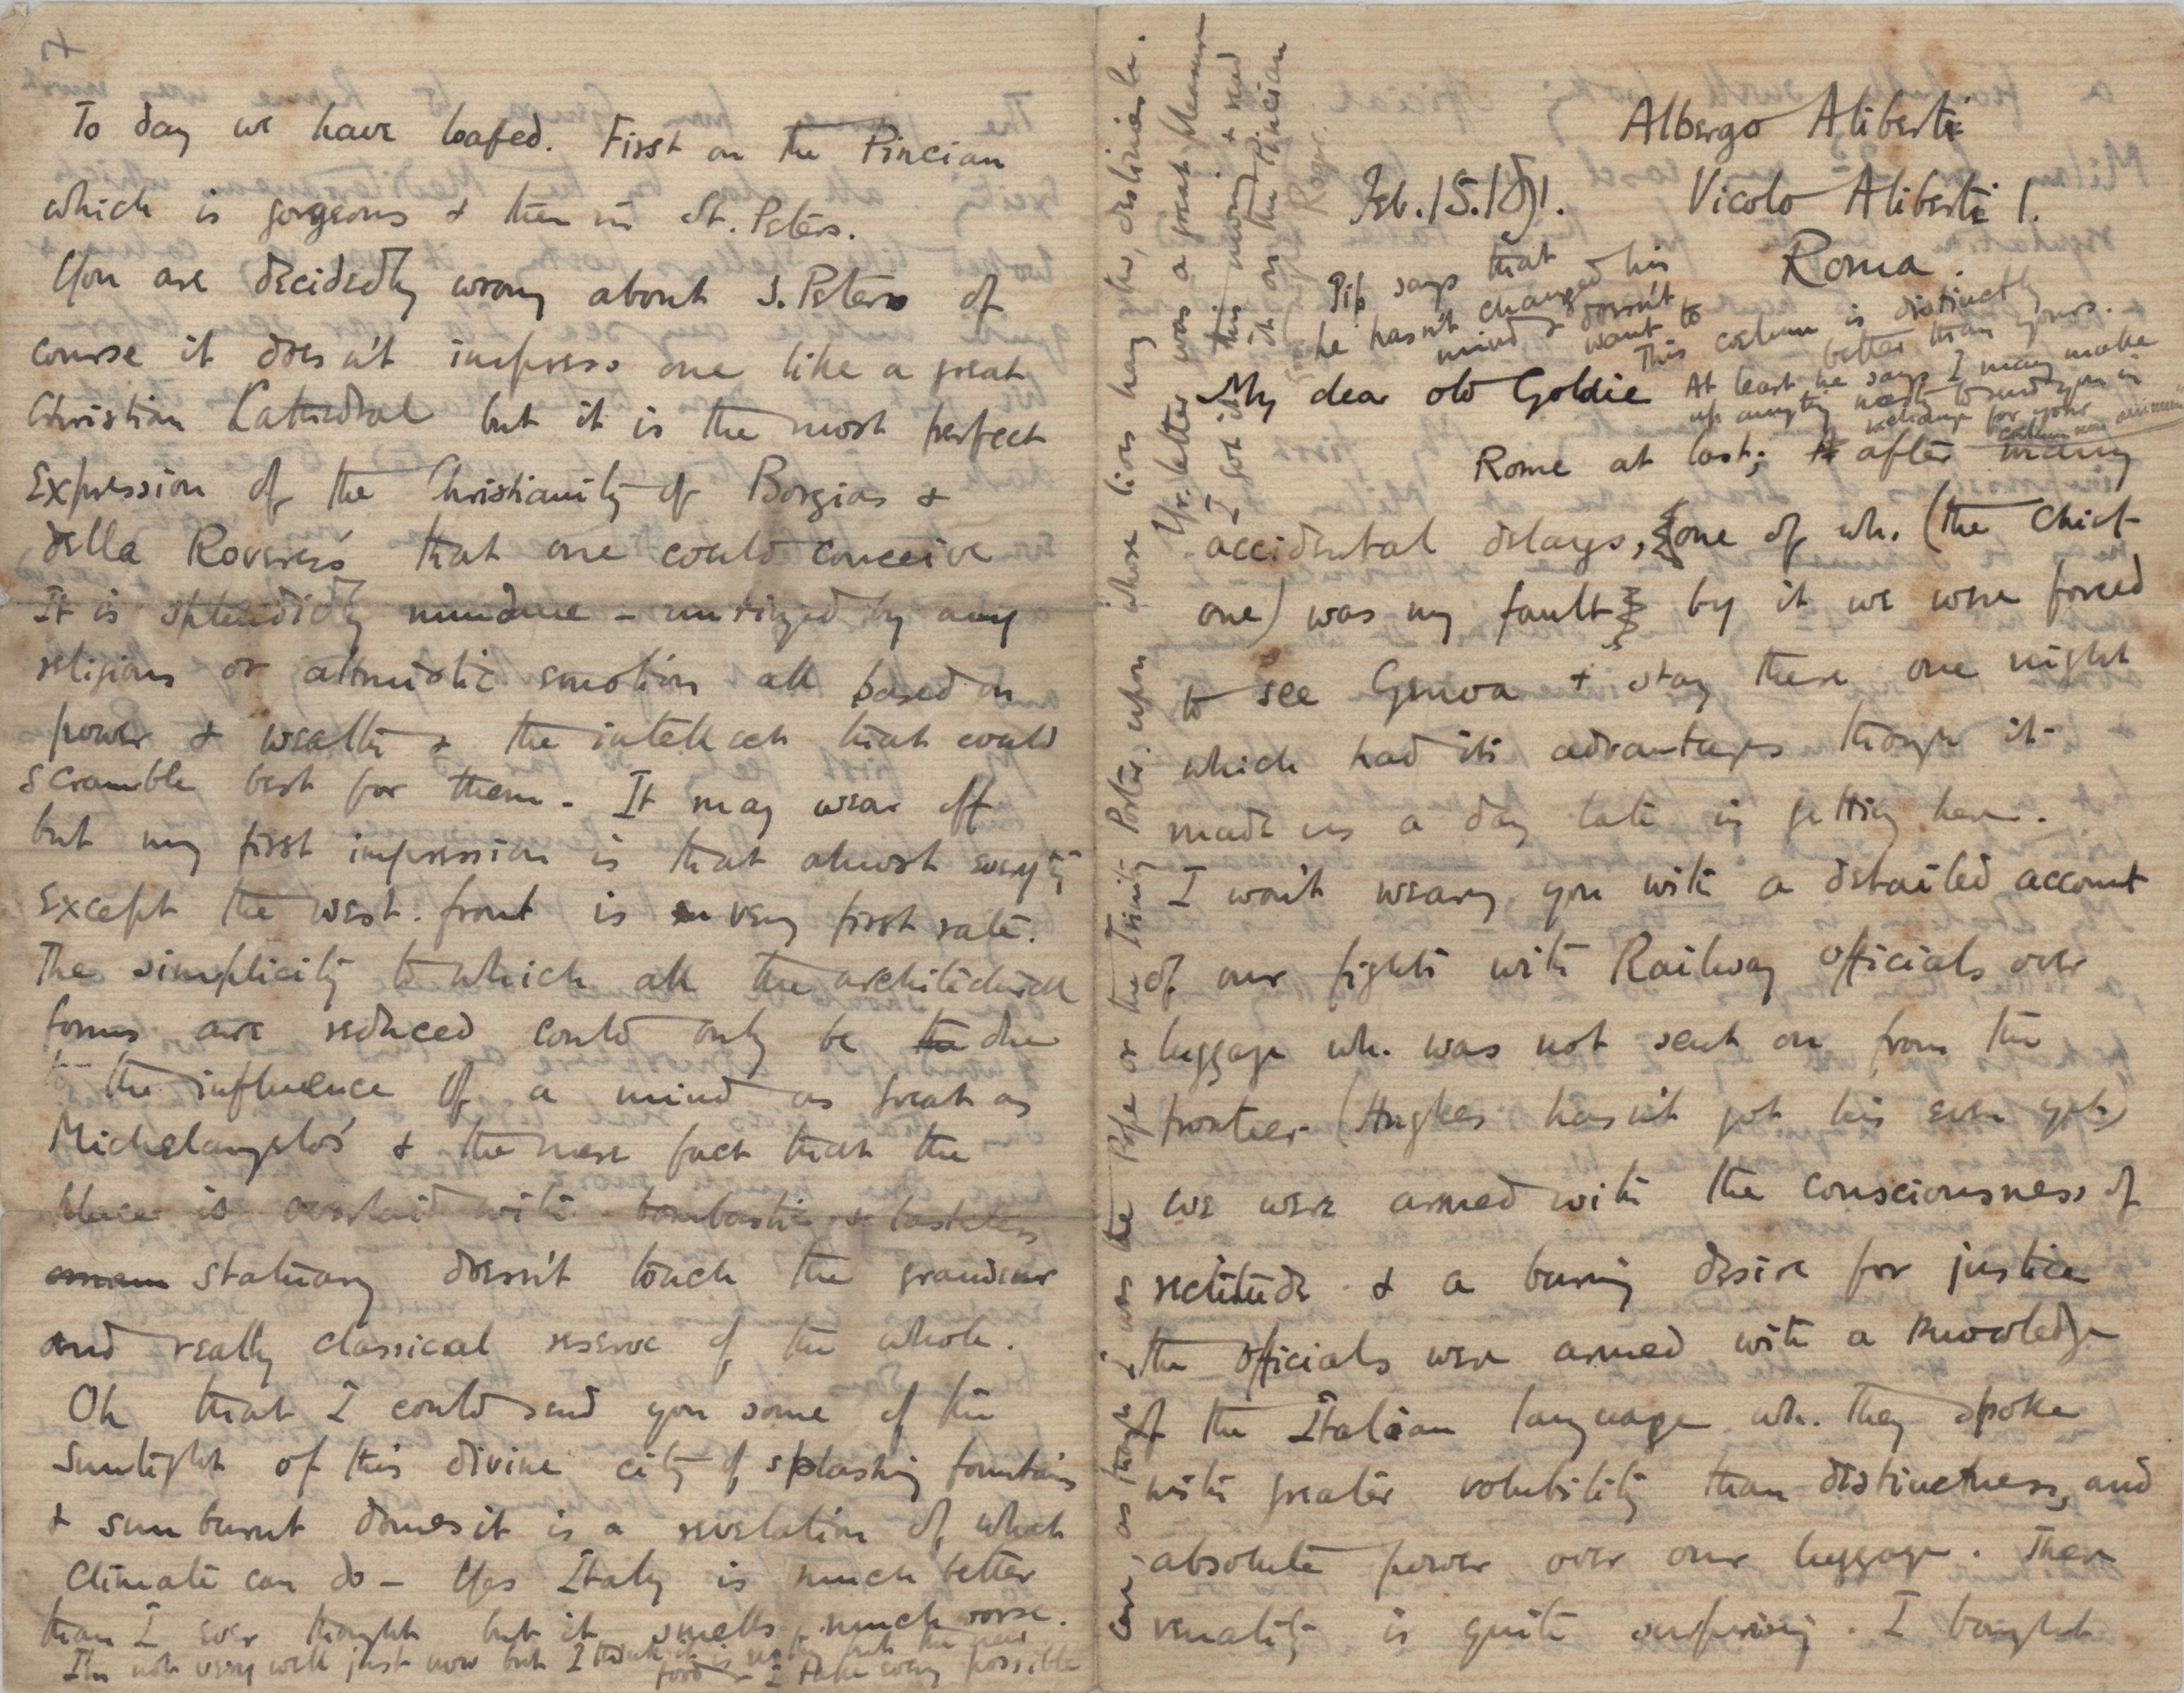 Albergo Aliberti
Feb. 15. 1891.
Vicolo Aliberti 1.
Roma.
Pip says that
he hasn't changed his
mind & doesn't
want to
This column is distinctly
better than yours.
At least he says I may make
up anything to send you in
exchange for your
My dear old Goldie
Rome at last; after many
accidental delays, one of wh. (the chief
one) was my fault by it we were forced
to see Genoa & stay there one night
which had its advantages though it
made us a day late in getting here.
I won't weary you with a detailed account
of our fights with Railway officials over
luggage wh. was not sent on from the
frontier (Hughes hasn't got his even yet)
we were armed with the consciousness of
rectitude & a burning desire for justice
the officials were armed with a knowledge
of the Italian language wh. they spoke
with greater volubility than distinctness, and
absolute power over our luggage. Their
venality is quite surprising. I bought
4
To day we have loafed. First on the Pincian
which is gorgeous & then in St. Peters.
You are decidedly wrong about S. Peters of
course it does n't impress one like a great
Christian Cathedral but it is the most perfect
Expression of the Christianity of Borgias &
della Rovere's that one could conceive
It is splendidly mundane – untinged by any
religious or altruistic emotion all based on
power & wealth & the intellect that could
scramble best for them. It may wear off
but my first impression is that almost everytg
Except the west. front is very first rate.
The simplicity to which all the architectural
forms are reduced could only be due
to the influence of a mind as great as
Michelangelo's & the mere fact that the
place is overlaid with bombastic & tasteless
statuary doesn't touch the grandeur
and really classical reserve of the whole.
Oh that I could send you some of the
Sunlight of this divine city of splashing fountains
& sun burnt domes it is a revelation of what
Climate can do – Yes Italy is much better
than I ever thought but it smells much worse.
I'm not very well just now but I think it is nothg but the new
food & I take every possible
care, as though I was the Pope or the Trinity Porter, upon whose lions hang destinies
Yr. letter was a great pleasure
I got it this morng & read
it on the Pincian
Roger.